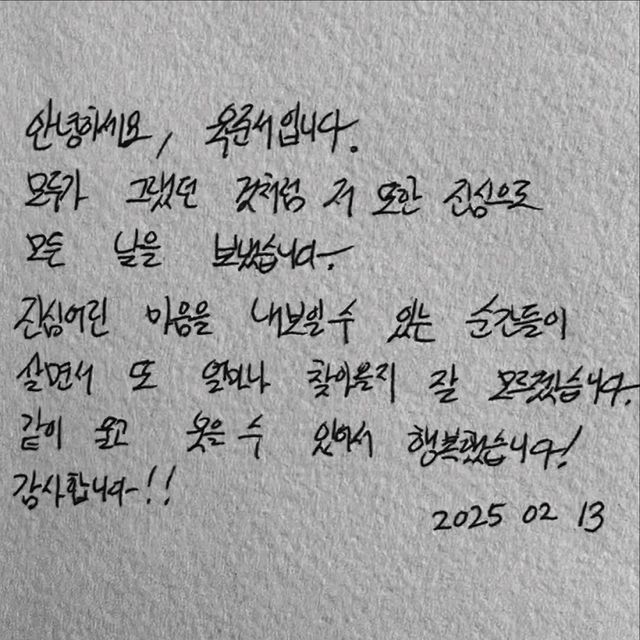 안녕하세요, 육준서입니다.
모두가 그랬던 것처럼 저 또한 진심으로
모든 날을 보냈습니다.
진심어린 마음을 내보일 수 있는 순간들이
살면서 또 얼마나 찾아올지 잘 모르겠습니다.
같이 울고 웃을 수 있어서 행복했습니다!
감사합니다~!!
2025 02 13